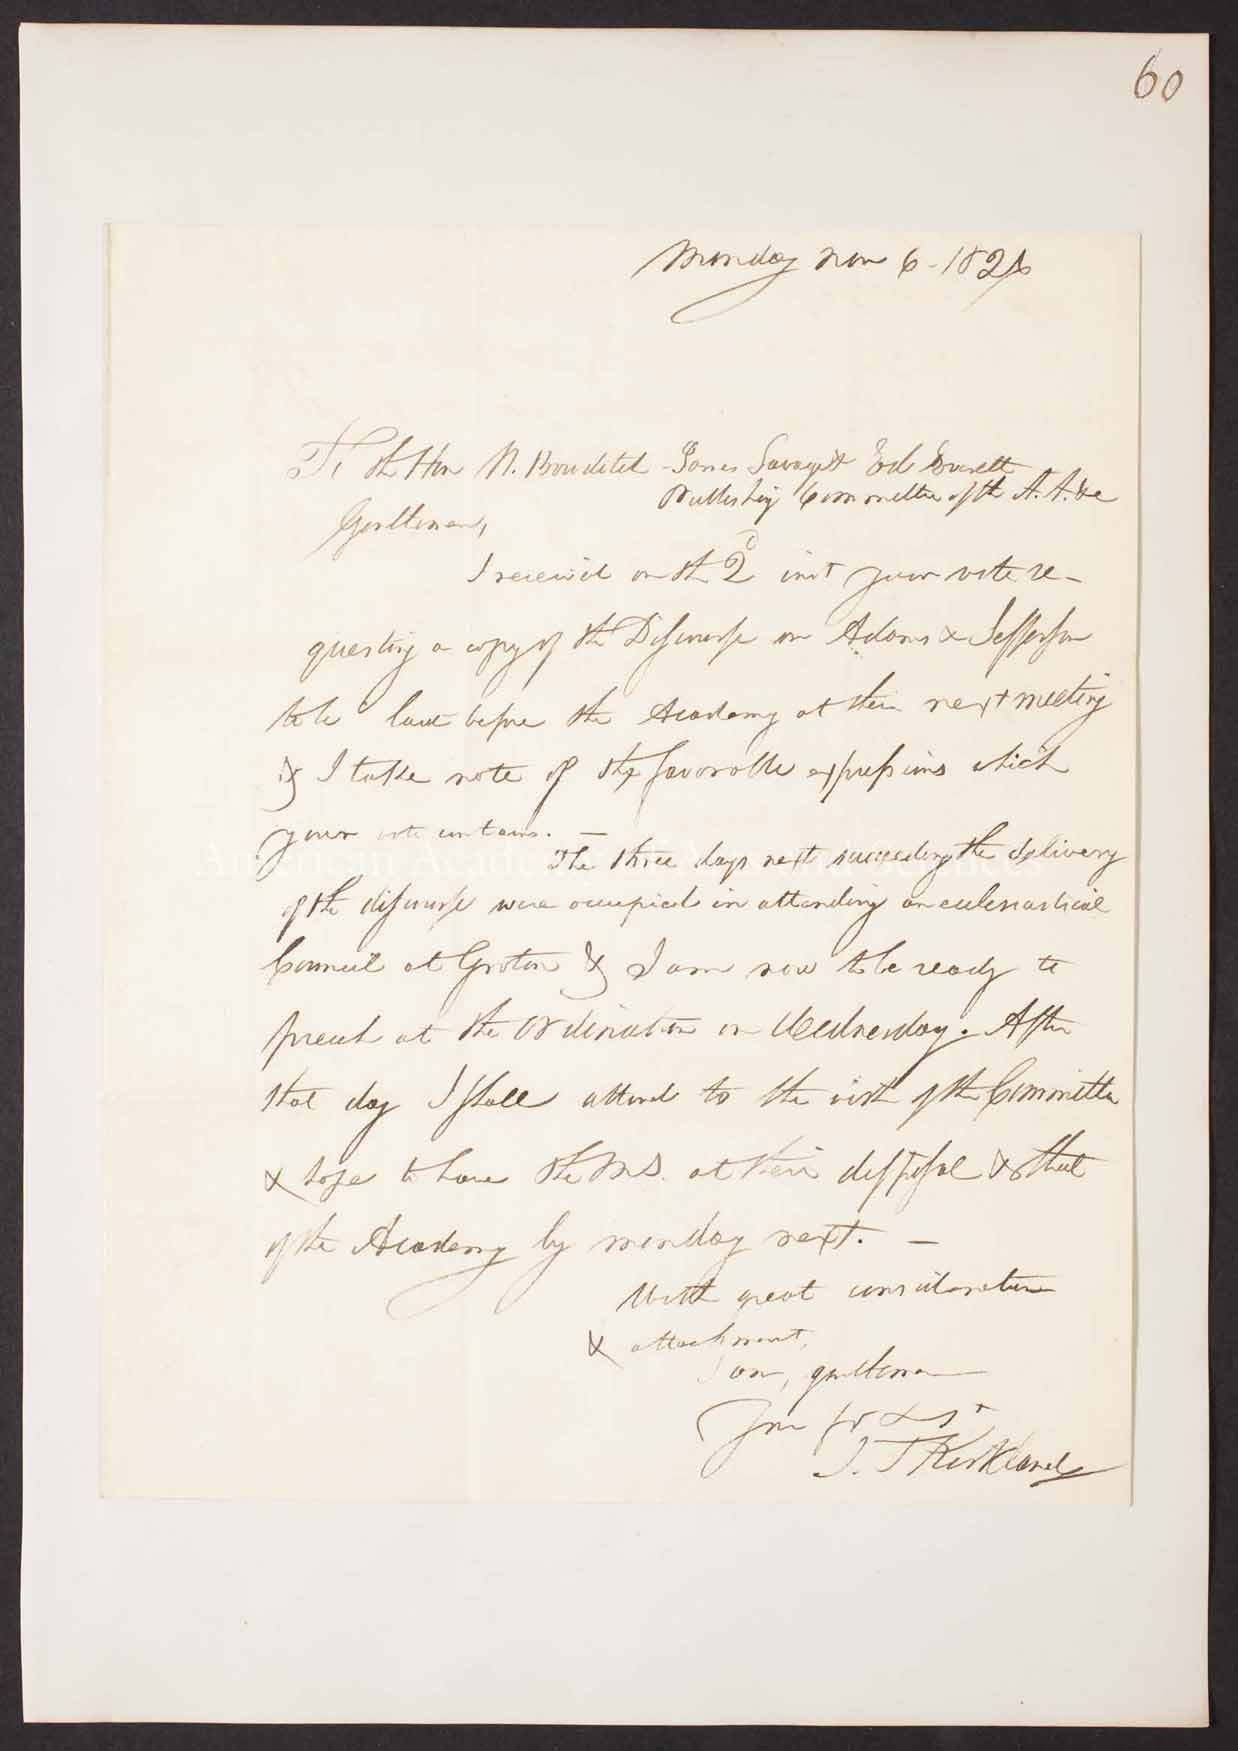 60
Monday Nov 6 - 1826
To the Hon N. Bowditch - James Savage & Ed. Everett
Publishing Committee of the A. A. &c
Gentlemen,
I receiv'd on the 2d inst your vote re-
questing a copy of the Discourse on Adams & Jefferson
to be laid before the Academy at their next meeting
& I take note of the favorable expressions which
your vote contains. —
The three days next succeeding the delivery
of the discourse were occupied in attending an ecclesiastical
Council at Groton & I am now to be ready to
preach at the Ordination on Wednesday. After
that day I shall attend to the wish of the Committee
& hope to have the MS. at their disposal & that
of the Academy by monday next. —
With great consideration
& attachment,
I am, gentlemen
Your fr & st
J. T Kirkland
American Academy of Arts and Sciences